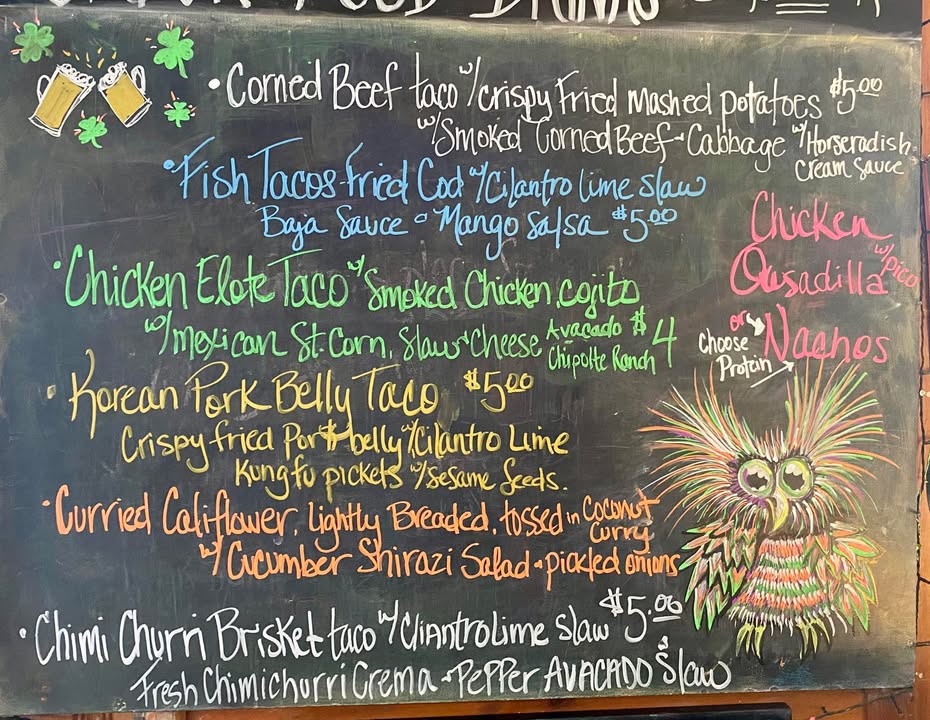 FOOD DRINKS
• Corned Beef taco w/crispy Fried Mashed potatoes $5.00
w/Smoked Corned Beef - Cabbage w/Horseradish
Cream Sauce
• Fish Tacos-Fried Cod w/Cilantro lime slaw
Baja Sauce - Mango Salsa $5.00
• Chicken Elote Taco w/ Smoked Chicken, cojito
w/mexican St. Corn, Slaw & Cheese Avacado $4
Chipotte Ranch
• Korean Pork Belly Taco $5.00
Crispy fried Pork belly w/Cilantro Lime
Kung fu pickets w/Sesame Seeds.
• Curried Califlower, lightly Breaded, tossed in Coconut
Curry
w/Cucumber Shirazi Salad - pickled onions
• Chimi Churri Brisket taco w/CliantroLime slaw $5.00
Fresh Chimichurri Crema - Pepper AVACADO $ Slaw
Chicken
Qusadilla w/pico
or Naehos
Choose
Protein